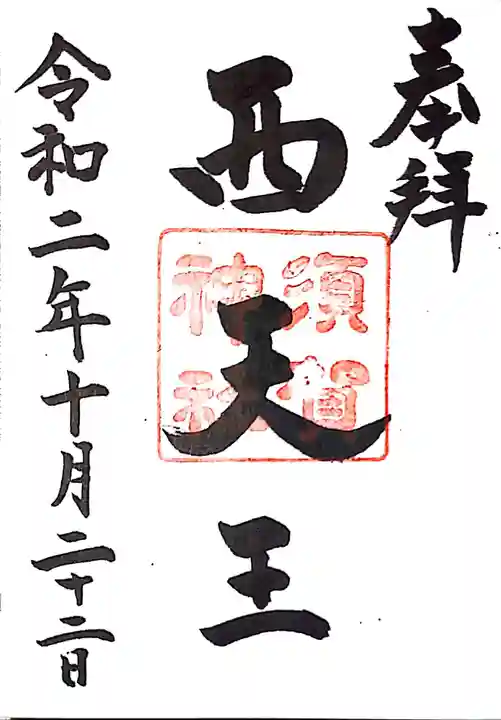 奉拝
西天王
須賀
神社
令和二年十月二十二日